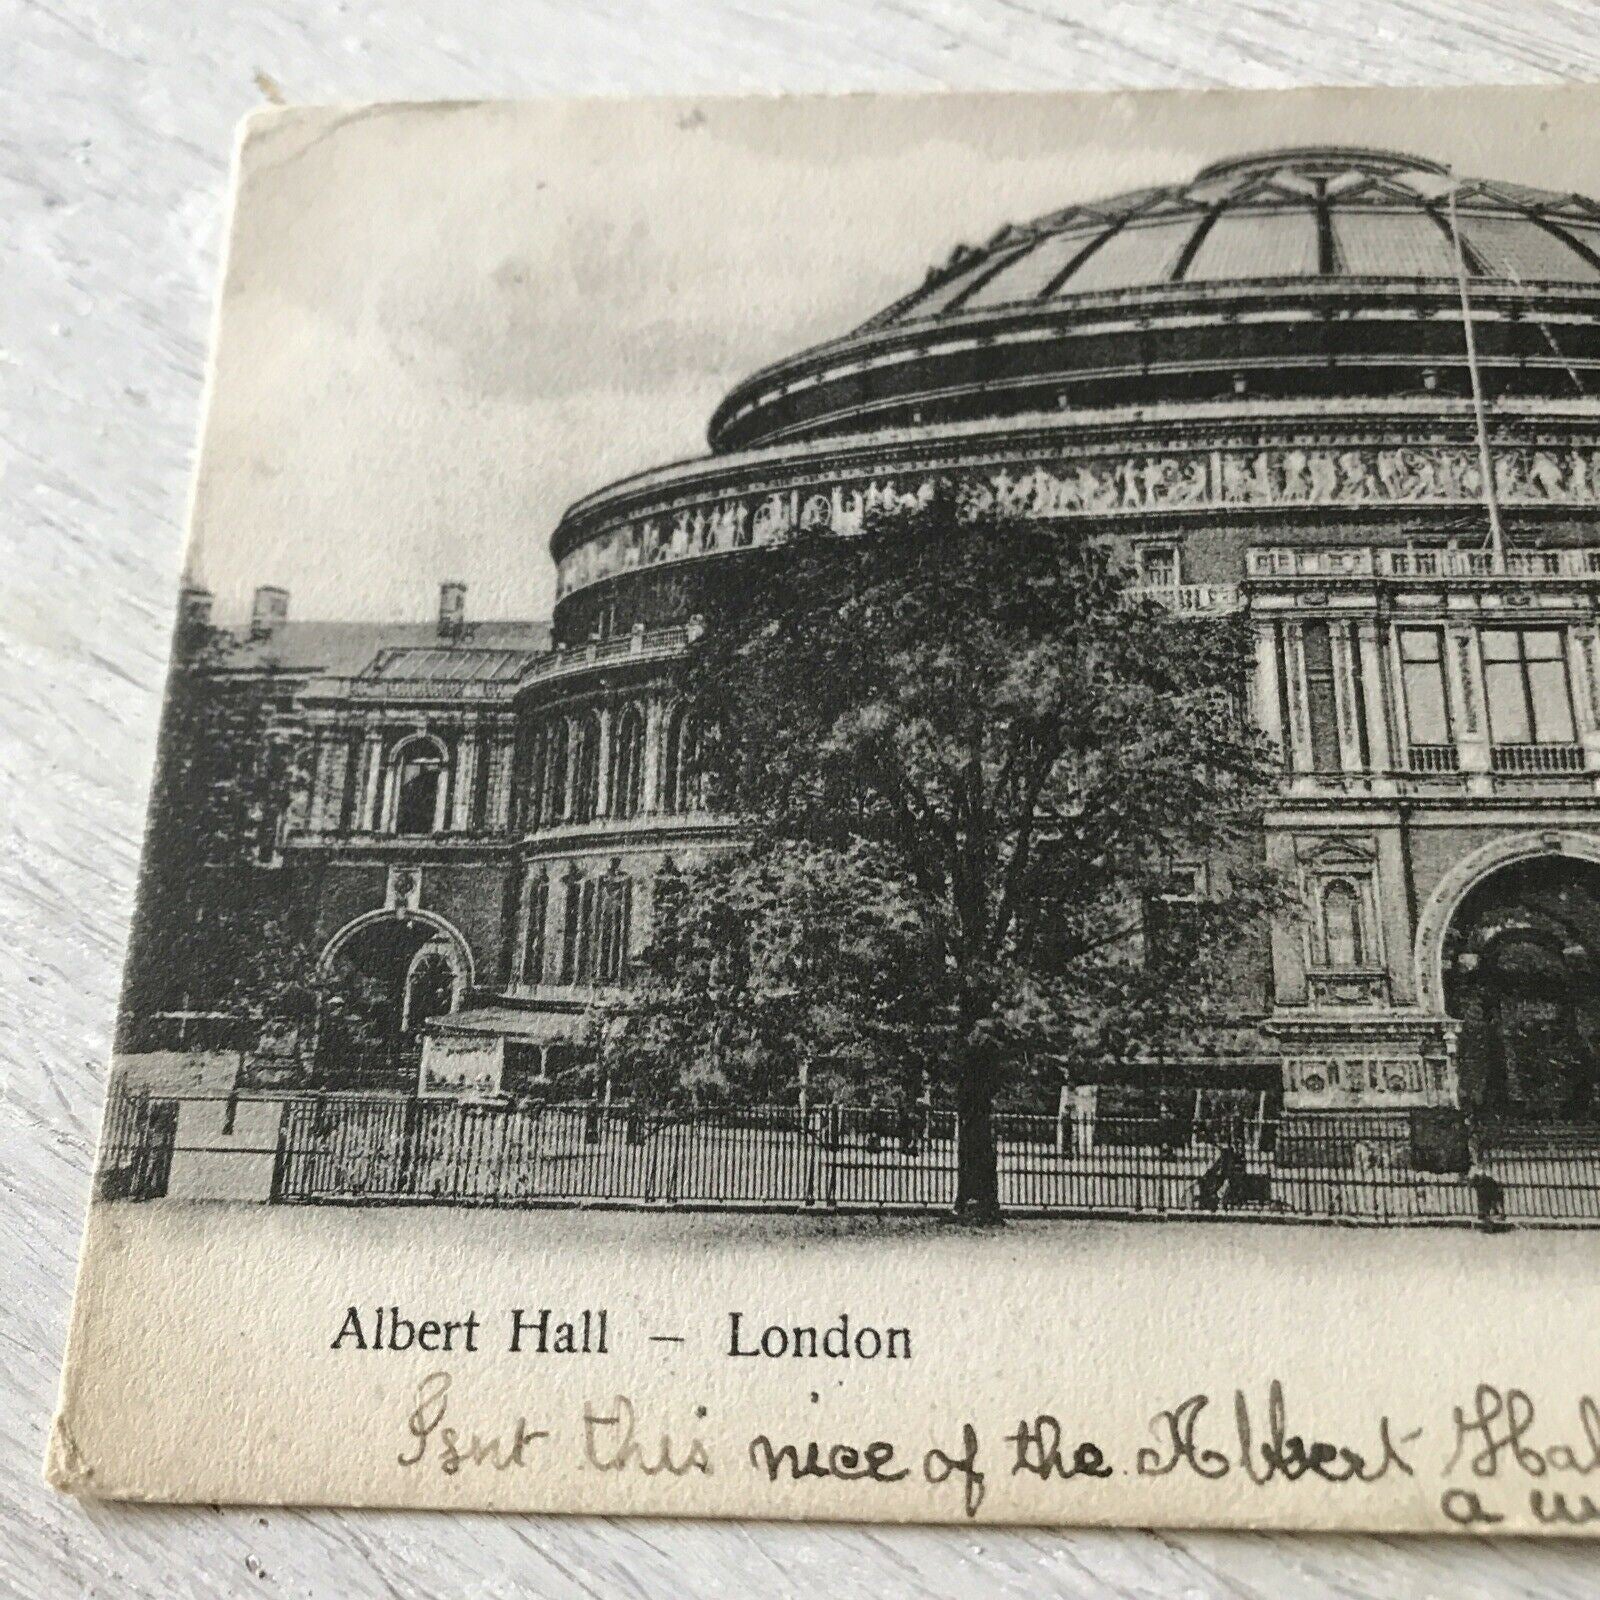 Albert Hall – London
Isnt this nice of the Albert Hal
a